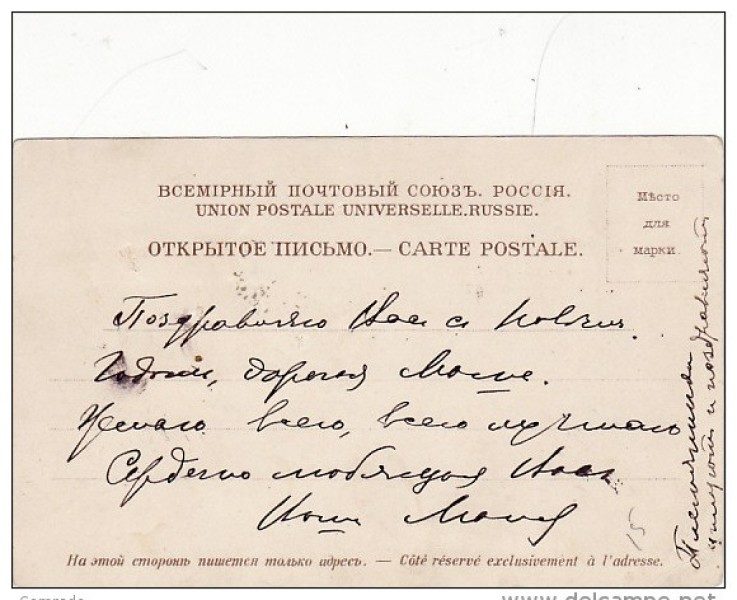 ВСЕМІРНЫЙ ПОЧТОВЫЙ СОЮЗЪ. РОССІЯ.
UNION POSTALE UNIVERSELLE.RUSSIE.
ОТКРЫТОЕ ПИСЬМО.— CARTE POSTALE.
Мѣсто
для
марки
Поздравляю Васъ съ Новымъ
Годомъ, дорогая
Желаю всего, всего лучшаго
Сердечно любящая Васъ
и поздравляютъ
15
На этой сторонѣ пишется только адресъ. — Côté réservé exclusivement à l'adresse.
Comrade
www.delcampe.net